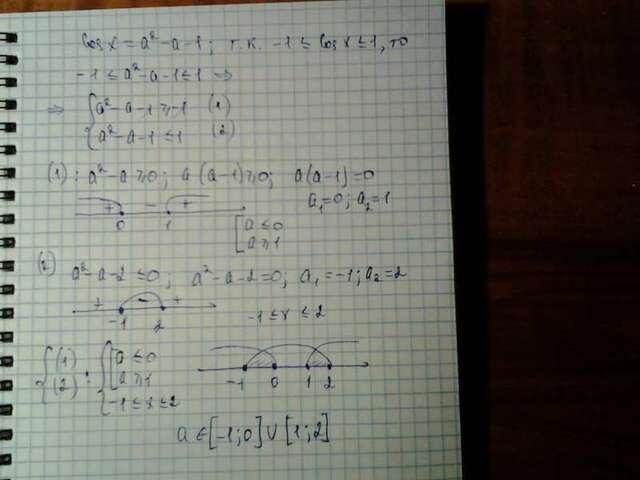 cos x = a² - a - 1; т.к. -1 ≤ cos x ≤ 1, то
-1 ≤ a² - a - 1 ≤ 1 ⇒
⇒ { a² - a - 1 ≥ -1 (1)
{ a² - a - 1 ≤ 1 (2)
(1): a² - a ≥ 0; a(a-1) ≥ 0; a(a-1) = 0
a₁ = 0; a₂ = 1
+ - +
0 1
[ a ≤ 0
[ a ≥ 1
(2) a² - a - 2 ≤ 0; a² - a - 2 = 0; a₁ = -1; a₂ = 2
+ - +
-1 2
-1 ≤ x ≤ 2
{ (1) : { [ a ≤ 0
{ (2) [ a ≥ 1
{ -1 ≤ x ≤ 2
-1 0 1 2
a ∈ [-1; 0] ∪ [1; 2]